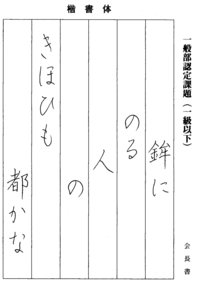 楷書体
一般部認定課題(一級以下)
鉾に
のる
人の
きほひも
都かな
会長書